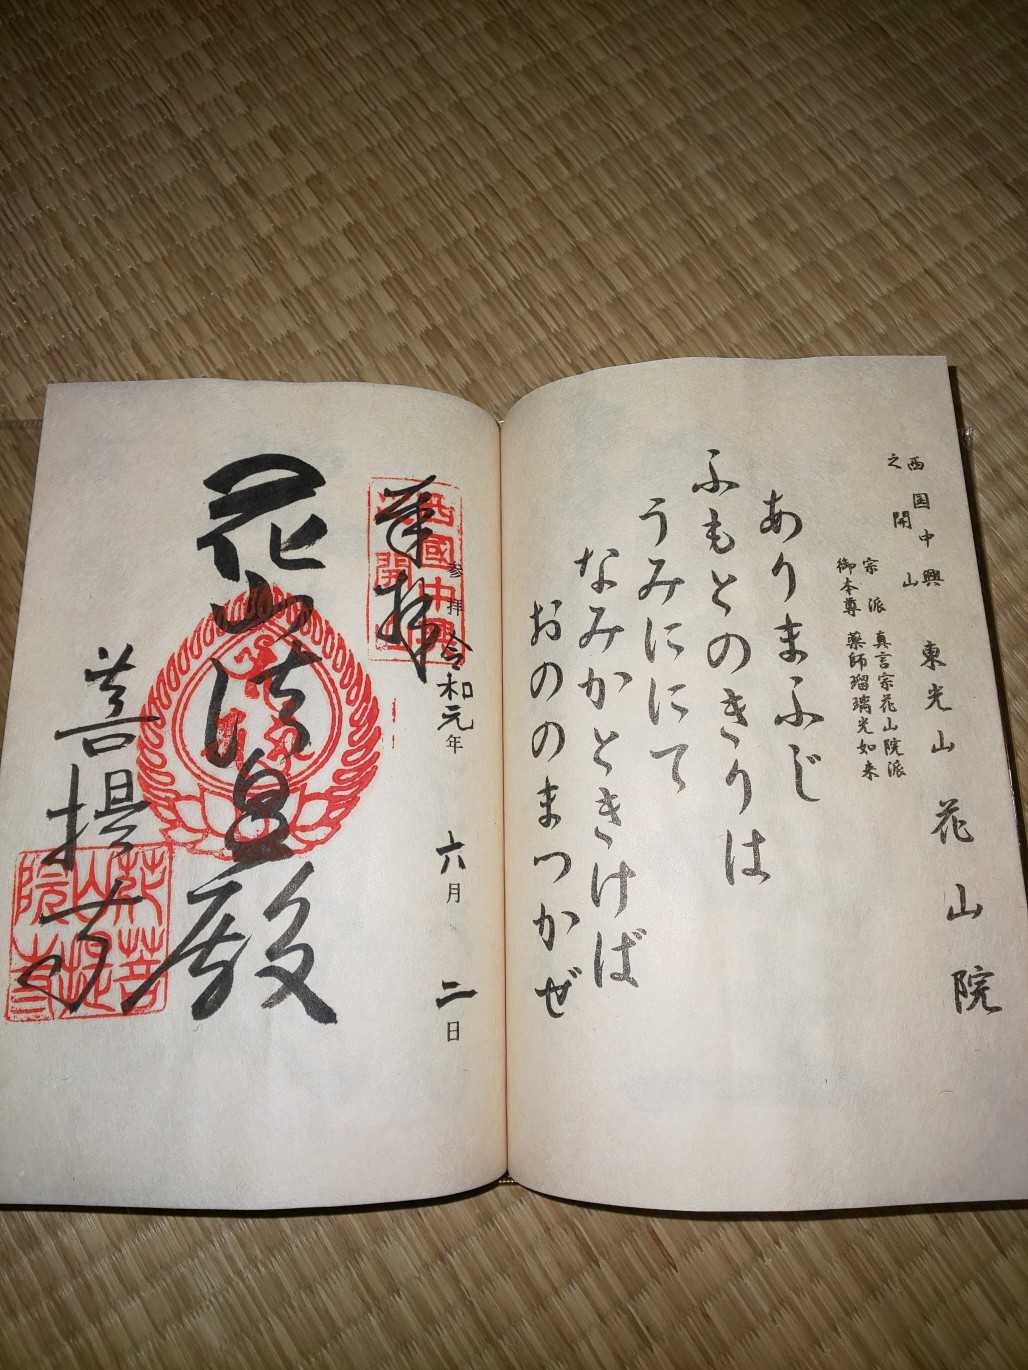 西国中興
之開山
東光山 花山院
宗派 真言宗花山院派
御本尊 薬師瑠璃光如来
ありまふじ
ふもとのきりは
うみににて
なみかときけば
おののまつかぜ
奉拝
西國中興
開
参拝 令和元年 六月 二日
花山法皇殿
菩提寺
花山院菩提寺